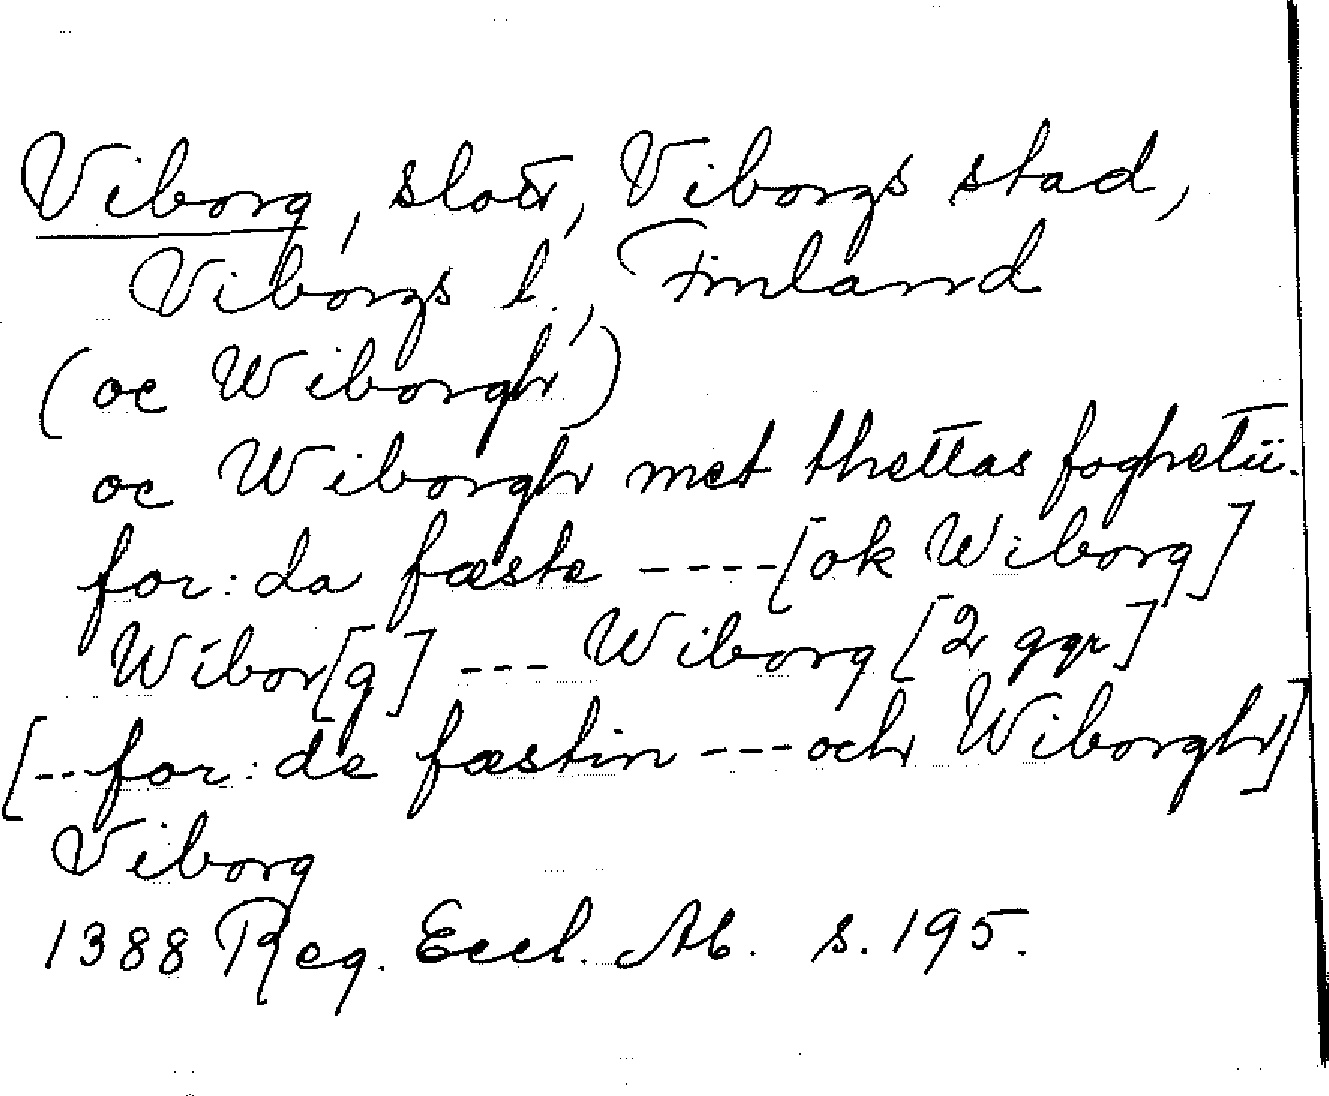 Viborg, slott, Viborgs stad,
Viborgs l., Finland
(oc Wiborgh)
oc Wiborgh met thettas foghetii.
for: da fæste ----[ok Wiborg]
Wibor[g] --- Wiborg [2 ggr]
[--for: de fæstin ---och Wiborgh]
Viborg
1388 Reg. Eccl. Ab. s. 195.